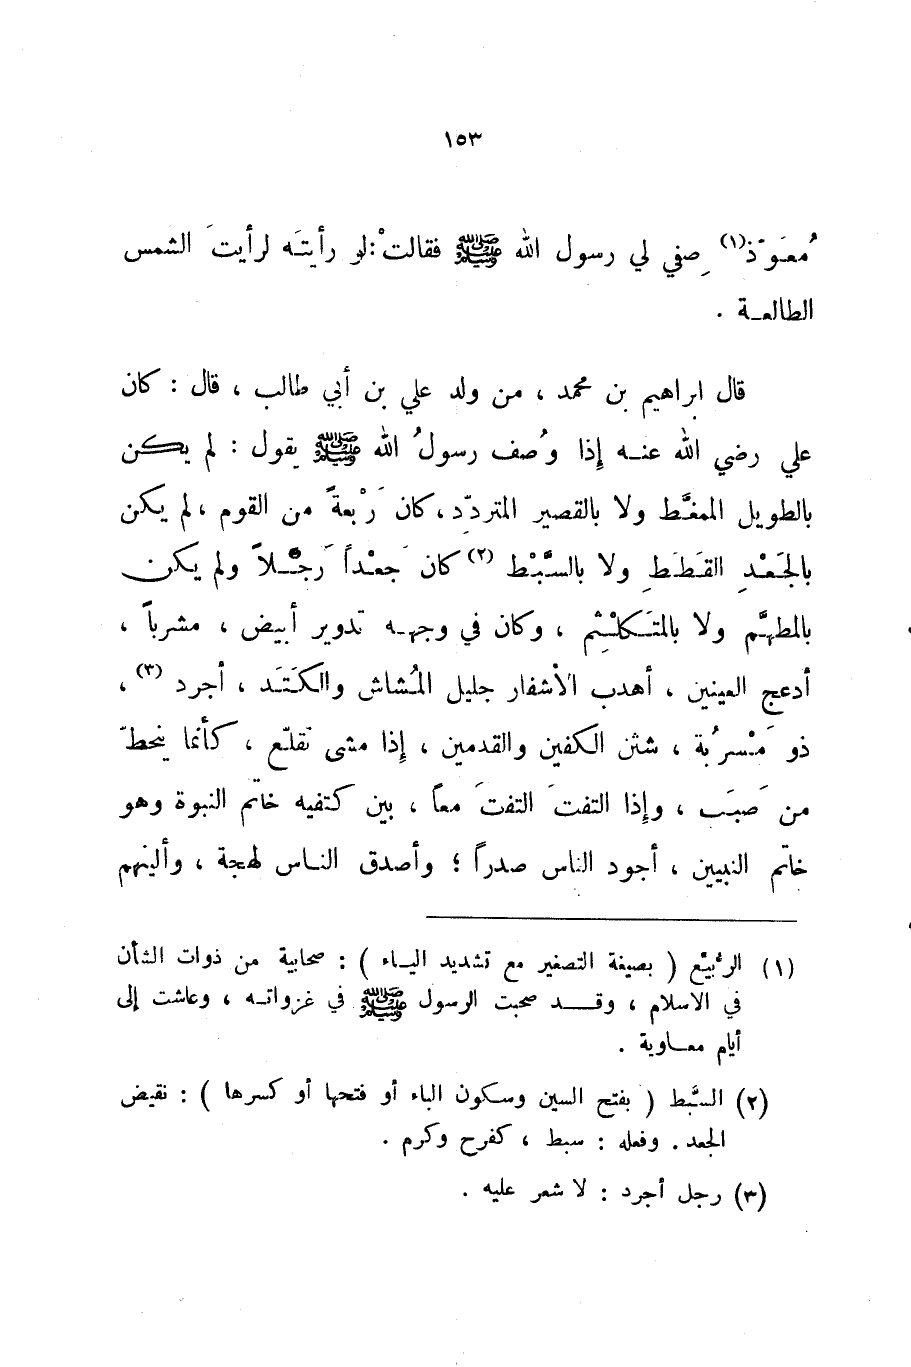 ١٥٣
مُعَوّذ(١) صِفي لي رسول الله ﷺ فقالتْ : لو رأيتَه لرأيتَ الشمس
الطالعة .
قال ابراهيم بن محمد ، من ولد علي بن أبي طالب ، قال : كان
علي رضي الله عنه إذا وُصف رسولُ الله ﷺ يقول : لم يكن
بالطويل الممغَّط ولا بالقصير المتردّد ، كان رَبْعةً من القوم ، لم يكن
بالجَعْدِ القَطَطِ ولا بالسَّبْط (٢) كان جَعْداً رَجْلاً ولم يكن
بالمطهَّم ولا بالمتَكَلْثِم ، وكان في وجهه تدوير أبيض ، مشرباً ،
أدعج العينين ، أهدب الأشفار جليل المُشاش والكَتَد ، أجرد (٣) ،
ذو مَسْرُبة ، شثن الكفين والقدمين ، إذا مشى تقلّع ، كأنما ينحطّ
من صَبَب ، وإذا التفتَ التفتَ معاً ، بين كتفيه خاتم النبوة وهو
خاتم النبيين ، أجود الناس صدراً ؛ وأصدق الناس لهجة ، وألينهم
(١) الرُّبيّع ( بصيغة التصغير مع تشديد الياء ) : صحابية من ذوات الشأن
في الاسلام ، وقد صحبت الرسول ﷺ في غزواته ، وعاشت إلى
أيام معاوية .
(٢) السَّبط ( بفتح السين وسكون الباء أو فتحها أو كسرها ) : نقيض
الجعد . وفعله : سبط ، كفرح وكرم .
(٣) رجل أجرد : لا شعر عليه .